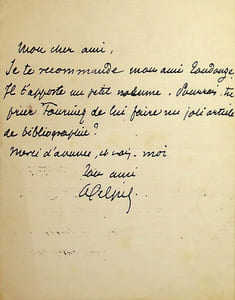 Mon cher ami,
Je te recommande mon ami
Il t'apporte un petit volume. Pourrais-tu
prier de lui faire un joli article
de bibliographie ?
Merci d'avance, et crois-moi
ton ami